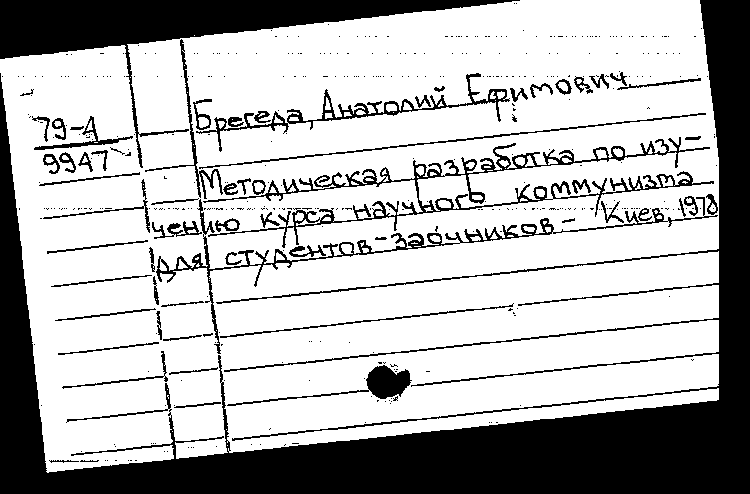 79-А
9947
Брегеда, Анатолий Ефимович
Методическая разработка по изу-
чению курса научного коммунизма
для студентов-заочников - Киев, 1978